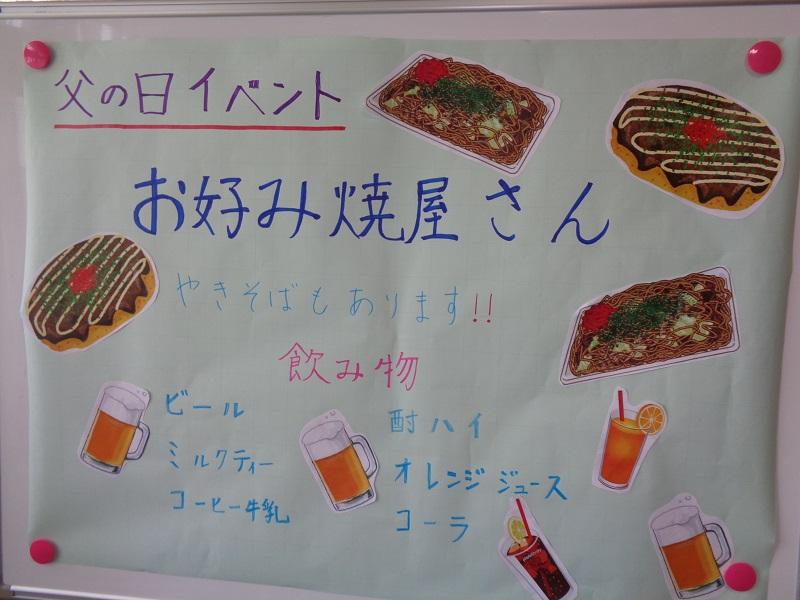 父の日イベント
お好み焼屋さん
やきそばもあります!!
飲み物
ビール
ミルクティー
コーヒー牛乳
酎ハイ
オレンジジュース
コーラ